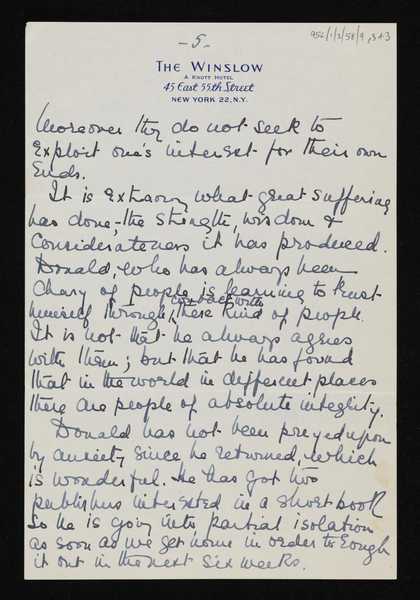 - 5 -
THE WINSLOW
A KNOTT HOTEL
45 East 55th Street
NEW YORK 22, N.Y.
Moreover they do not seek to
exploit one's interest for their own
Ends.
It is extraory what great suffering
has done, - the strength, wisdom &
considerateness it has produced.
Donald, who has always been
chary of people is learning to trust
contact with
himself through these kind of people.
It is not that he always agrees
with them; but that he has found
that in the world in different places
there are people of absolute integrity.
Donald has not been preyed upon
by anxiety since he returned, which
is wonderful. He has got two
publishers interested in a short book
So he is going into partial isolation
as soon as we get home in order to rough
it out in the next six weeks.